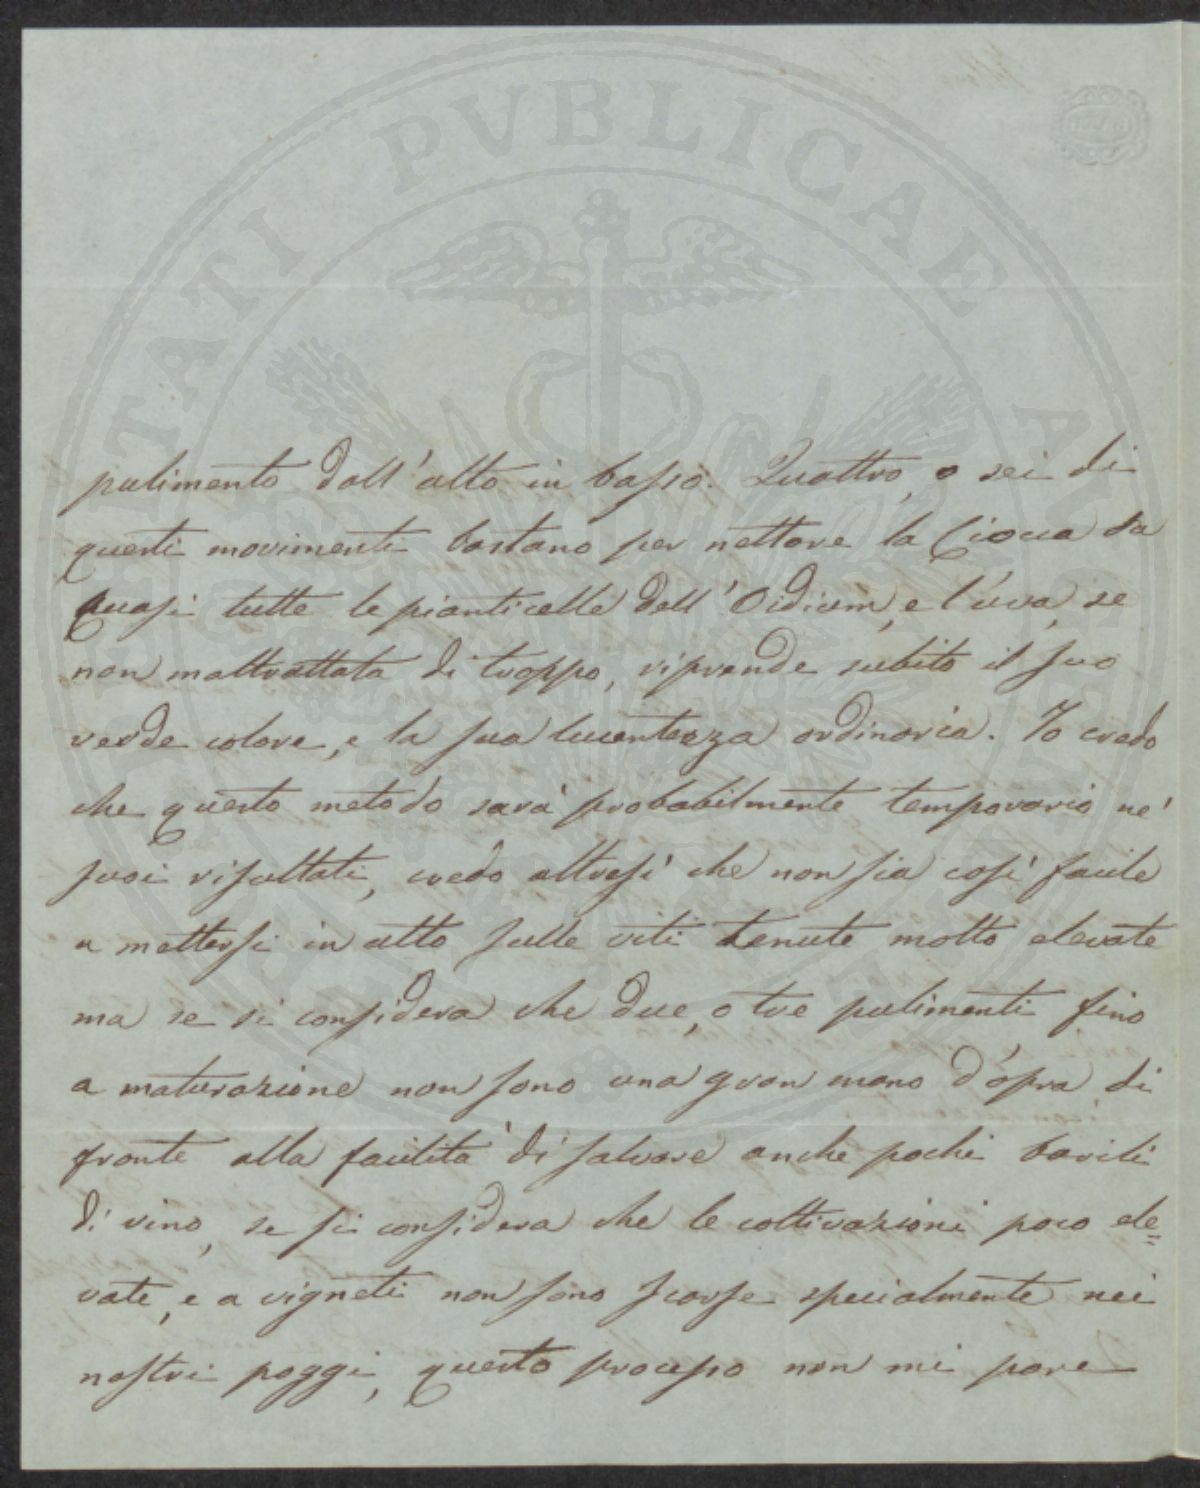 pulimento dall'alto in basso. Quattro, o sei di
questi movimenti bastano per nettare la Ciocca da
quasi tutte le pianticelle dell'Oidium, e l'uva, se
non maltrattata di troppo, riprende subito il suo
verde colore, e la sua lucentezza ordinaria. Io credo
che questo metodo sarà probabilmente temporario ne'
suoi risultati, credo altresi' che non sia cosi' facile
a mettersi in atto sulle viti tenute molto elevate
ma se si considera che due, o tre pulimenti fino
a maturazione non sono una gran mano d'opra di
fronte alla facilità di salvare anche pochi barili
di vino, se si considera che le coltivazioni poco ele=
vate, e a vigneti non sono scarse specialmente nei
nostri poggi, questo processo non mi pare